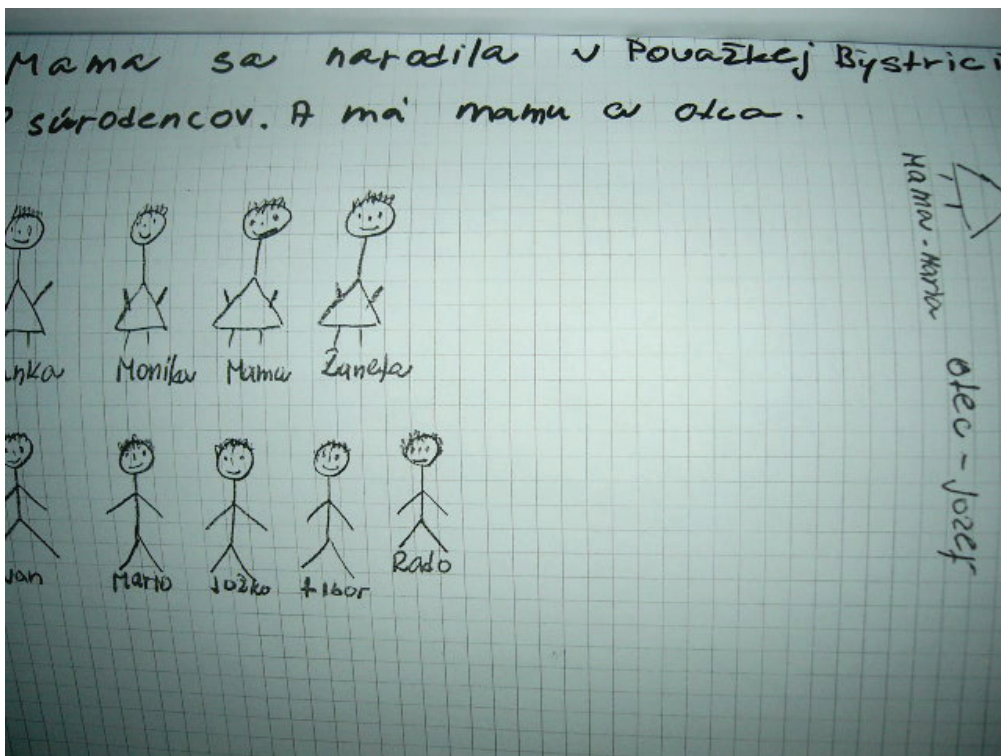 Mama sa narodila v Považkej Bystrici
súrodencov. A má mamu a otca.
Monika Mama Žaneta
Mario Jožko Tibor Rado
Mama - Maria
otec - Jozef